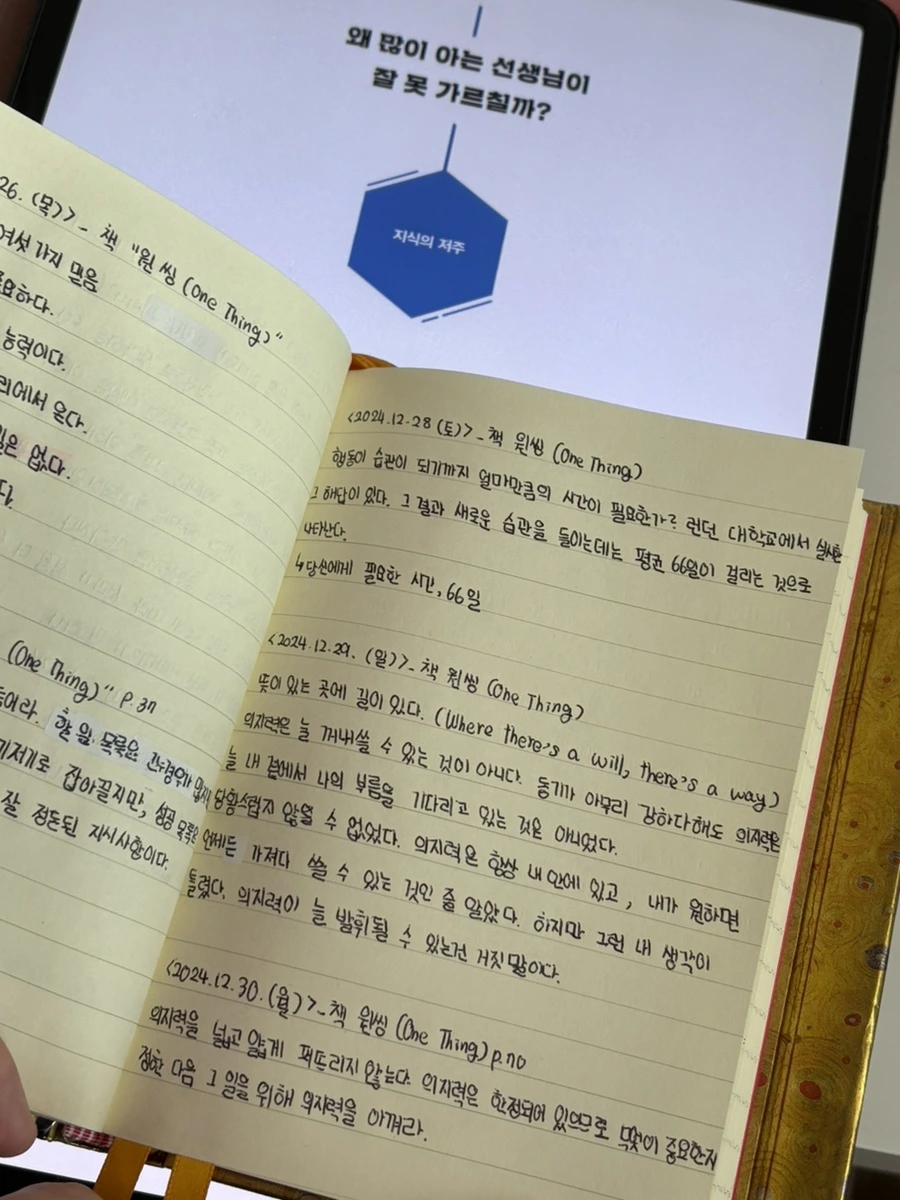 왜 많이 아는 선생님이
잘 못 가르칠까?
지식의 저주
26. (목)>_ 책 "원씽 (One Thing)"
여섯 가지 믿음
요하다.
능력이다.
리에서 온다.
일은 없다.
다.
(One Thing)" P.37
들어라. 할 일 목록은 간혹 경우가 많지만
기저기로 잡아끌지만, 성공 목록은
잘 정돈된 지시사항이다.
<2024.12.28 (토)>_책 원씽 (One Thing)
행동이 습관이 되기까지 얼마만큼의 시간이 필요한가? 런던 대학교에서 실시한
그 해답이 있다. 그 결과 새로운 습관을 들이는데는 평균 66일이 걸리는 것으로
나타난다.
↳당신에게 필요한 시간, 66일
<2024.12.29. (일)>_책 원씽 (One Thing)
뜻이 있는 곳에 길이 있다. (Where there's a will, there's a way)
의지력은 늘 꺼내쓸 수 있는 것이 아니다. 동기가 아무리 강하다해도 의지력은
늘 내 곁에서 나의 부름을 기다리고 있는 것은 아니었다.
당황스럽지 않을 수 없었다. 의지력은 항상 내 안에 있고, 내가 원하면
언제든 가져다 쓸 수 있는 것인 줄 알았다. 하지만 그런 내 생각이
틀렸다. 의지력이 늘 발휘될 수 있는건 거짓말이다.
<2024.12.30.(월)>_책 원씽 (One Thing) p.70
의지력을 넓고 얇게 퍼뜨리지 않는다. 의지력은 한정되어 있으므로 무엇이 중요한지
정한 다음 그 일을 위해 의지력을 아껴라.